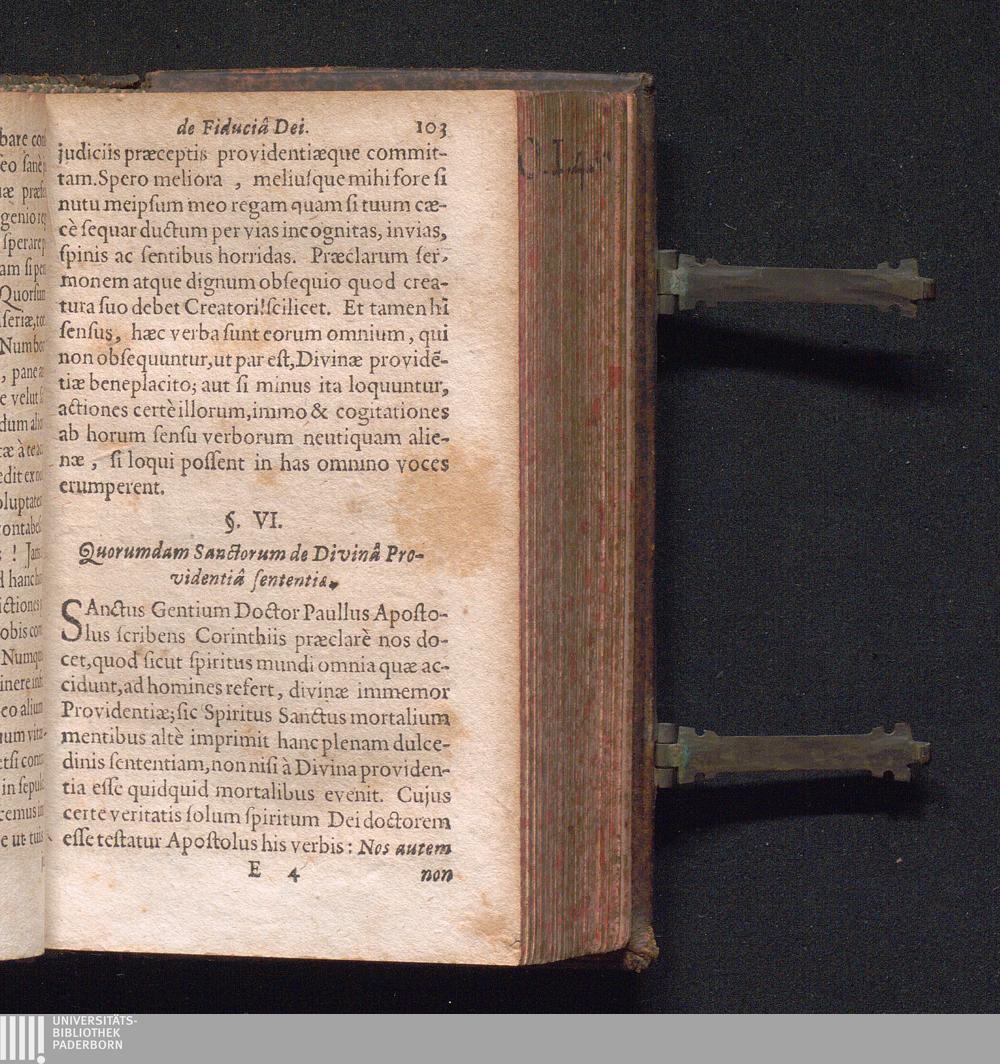 de Fiduciâ Dei. 103
judiciis præceptis providentiæque commit-
tam. Spero meliora , meliuſque mihi fore ſi
nutu meipſum meo regam quam ſi tuum cæ-
cè ſequar ductum per vias incognitas, invias,
ſpinis ac ſentibus horridas. Præclarum ſer-
monem atque dignum obſequio quod crea-
tura ſuo debet Creatori! ſcilicet. Et tamen hi
ſenſus, hæc verba ſunt eorum omnium, qui
non obſequuntur, ut par eſt, Divinæ providẽ-
tiæ beneplacito; aut ſi minus ita loquuntur,
actiones certè illorum, immo & cogitationes
ab horum ſenſu verborum neutiquam alie-
næ, ſi loqui poſſent in has omnino voces
erumperent.
§. VI.
Quorumdam Sanctorum de Divinâ Pro-
videntiâ ſententiæ.
SAnctus Gentium Doctor Paullus Apoſto-
lus ſcribens Corinthiis præclarè nos do-
cet, quod ſicut ſpiritus mundi omnia quæ ac-
cidunt, ad homines refert, divinæ immemor
Providentiæ; ſic Spiritus Sanctus mortalium
mentibus altè imprimit hanc plenam dulce-
dinis ſententiam, non niſi à Divina providen-
tia eſſe quidquid mortalibus evenit. Cujus
certe veritatis ſolum ſpiritum Dei doctorem
eſſe teſtatur Apoſtolus his verbis: Nos autem
E 4 non
UNIVERSITÄTS-
BIBLIOTHEK
PADERBORN